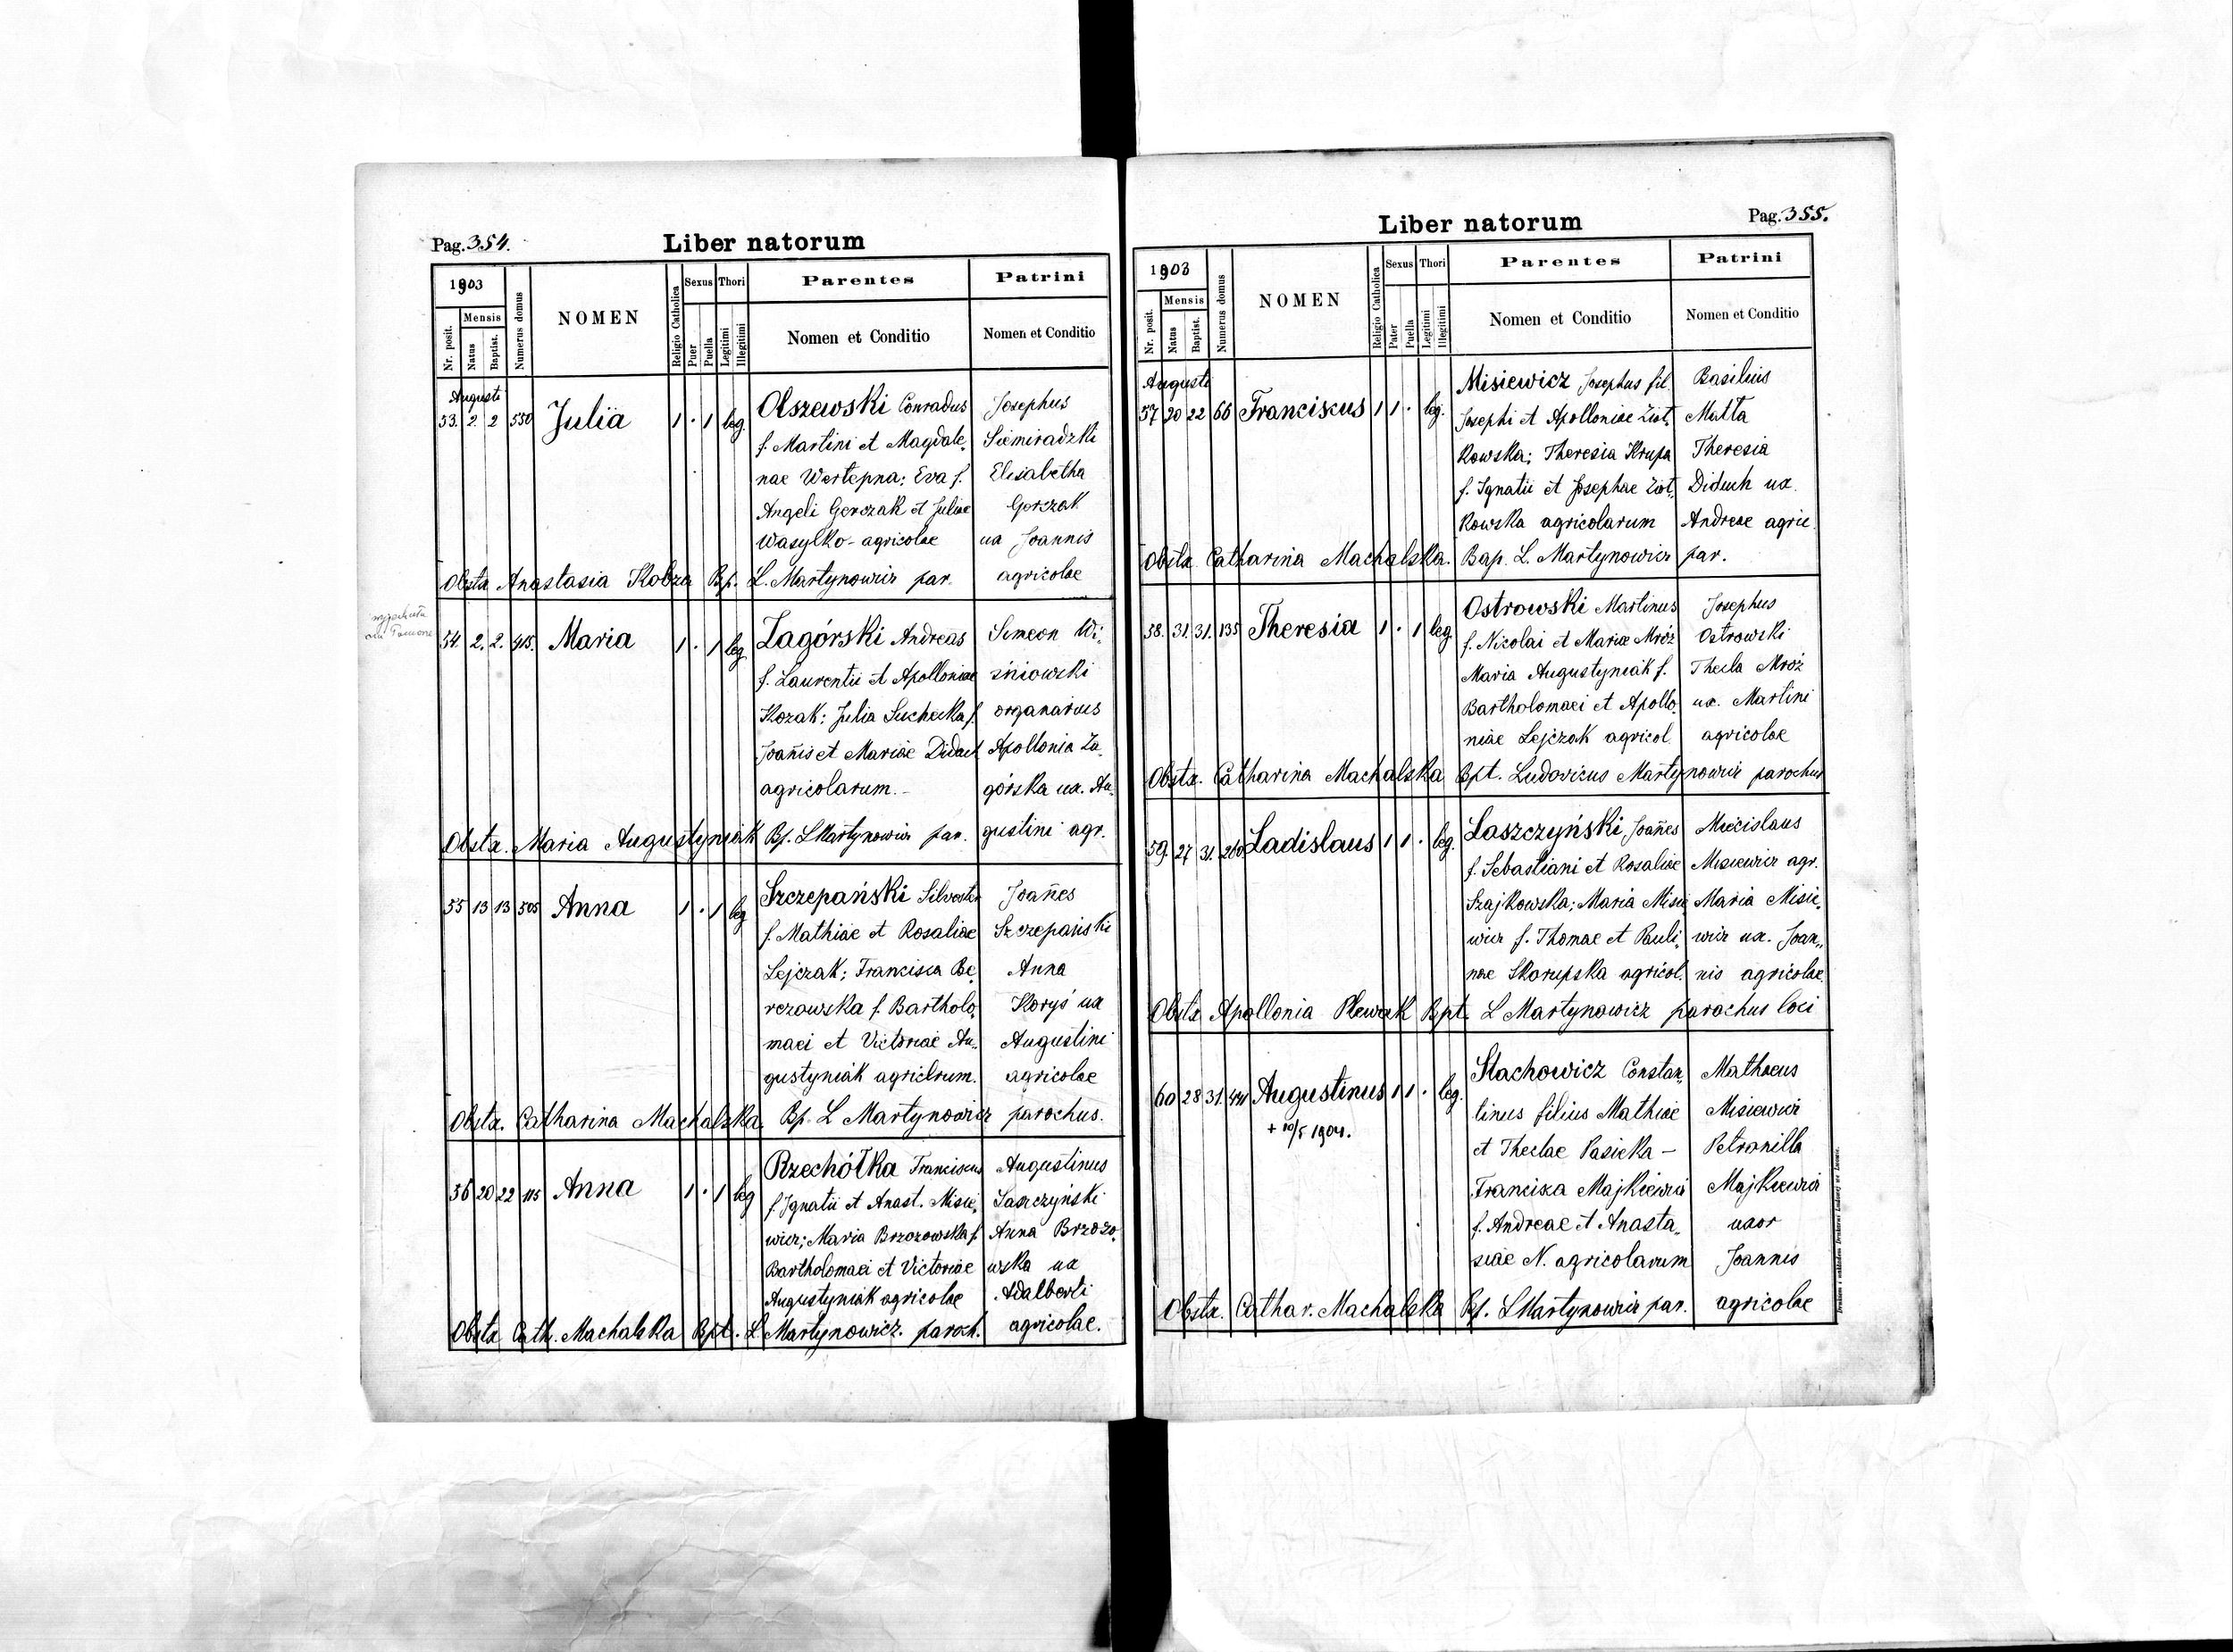 Pag. 354.
Liber natorum
1903
Nr. posit.
Mensis
Natus
Baptist.
Numerus domus
NOMEN
Religio Catholica
Sexus
Puer
Puella
Thori
Legitimi
Illegitimi
Parentes
Nomen et Conditio
Patrini
Nomen et Conditio
Augusti
53. 2. 2 550 Julia 1 . 1 leg. Olszewski Conradus Josephus
f. Martini et Magdale, Siemiradzki
nae Wertepna: Eva f. Elisabetha
Angeli Gorczak et Juliae Gorczak
Wasylko - agricolae ux Joannis
Obstx Anastasia Kobza Bp. L. Martynowicz par. agricolae
54. 2. 2. 415. Maria 1 . 1 leg Zagórski Andreas Simeon Wi,
f. Laurentii et Apolloniae śniowski
Kozak: Julia Suchecka f. organarius
Joañis et Mariae Diduch Apollonia Za,
agricolarum. - górska ux. Au,
Obstx. Maria Augustyniak Bp. L Martynowicz par. gustini agr.
55 13 13 505 Anna 1 . 1 leg Szczepański Silvester Joañes
f. Mathiae et Rosaliae Szczepański
Lejczak; Francisca Be, Anna
rezowska f. Bartholo, Koryś ux
maei et Victoriae Au, Augustini
gustyniak agriclrum. agricolae
Obstx. Catharina Machalska. Bp. L Martynowicz parochus.
56 20 22 115 Anna 1 . 1 leg Rzechółka Franciscus Augustinus
f. Ignatii et Anast. Misie, Laszczyński
wicz; Maria Brzozowska f. Anna Brzozo,
Bartholomaei et Victoriae wska ux
Augustyniak agricolae Adalberti
Obstx Cath. Machalska Bpt. L. Martynowicz. paroch. agricolae.
Pag. 355.
Liber natorum
1903
Nr. posit.
Mensis
Natus
Baptist.
Numerus domus
NOMEN
Religio Catholica
Sexus
Pater
Puella
Thori
Legitimi
Illegitimi
Parentes
Nomen et Conditio
Patrini
Nomen et Conditio
Augusti
57 20 22 66 Franciscus 1 1 . leg. Misiewicz Josephus fil. Basilius
Josephi et Apolloniae Żoł, Matta
kowska; Theresia Krupa Theresia
f. Ignatii et Josephae Żoł, Diduch ux.
kowska agricolarum Andreae agric.
Obstx. Catharina Machalska. Bap. L. Martynowicz par.
58. 31. 31. 135 Theresia 1 . 1 leg Ostrowski Martinus Josephus
f. Nicolai et Mariae Mróz Ostrowski
Maria Augustyniak f. Thecla Mróz
Bartholomaei et Apollo, ux. Martini
niae Lejczak agricol. agricolae
Obstx. Catharina Machalska Bpt. Ludovicus Martynowicz parochus
59. 27 31. 260 Ladislaus 1 1 . leg. Laszczyński Joañes Miecislaus
f. Sebastiani et Rosaliae Misiewicz agr.
Szajkowska; Maria Misie, Maria Misie,
wicz f. Thomae et Pauli, wicz ux. Joan,,
nae Skarupska agricol. nis agricolae.
Obstx Apollonia Plewak Bpt. L Martynowicz parochus loci
60 28 31. 441 Augustinus 1 1 . leg. Stachowicz Constan, Mathaeus
+ 10/5 1904. tinus filius Mathiae Misiewicz
et Theclae Pasieka - Petronilla
Francisca Majkiewicz Majkiewicz
f. Andreae et Anasta, uxor
siae N. agricolarum Joannis
Obstx. Cathar. Machalska Bp. L Martynowicz par. agricolae